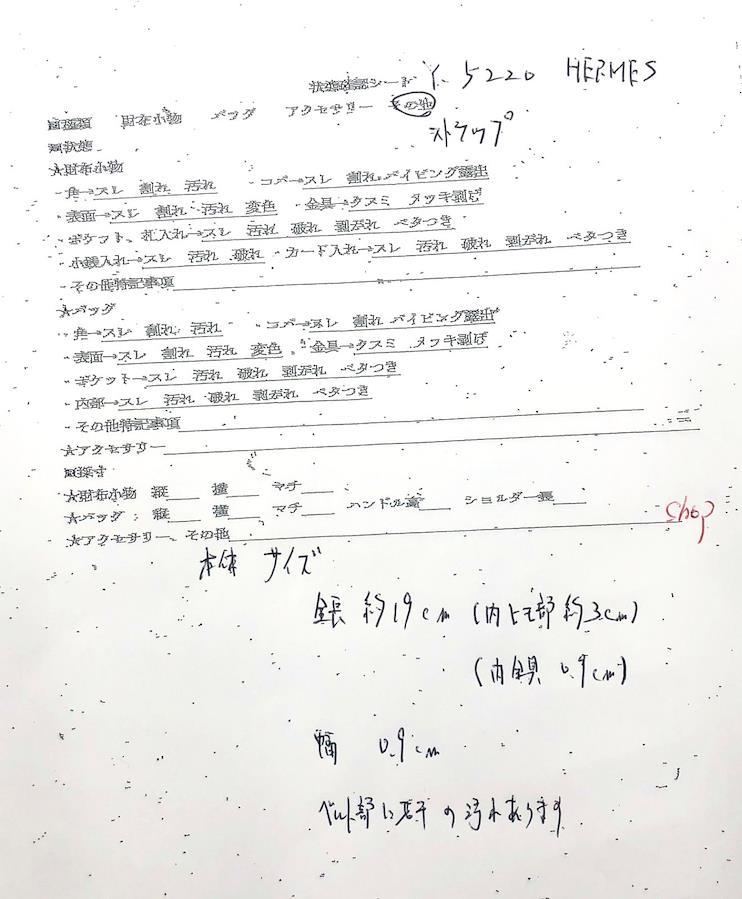 状態確認シート Y.5220 HERMES
■種類 財布小物 バッグ アクセサリー その他
ストラップ
■状態
★財布小物
・角→スレ 割れ 汚れ ・コバ→スレ 割れ パイピング露出
・表面→スレ 割れ 汚れ 変色 ・金具→クスミ メッキ剥げ
・ポケット、札入れ→スレ 汚れ 破れ 剥がれ ベタつき
・小銭入れ→スレ 汚れ 破れ ・カード入れ→スレ 汚れ 破れ 剥がれ ベタつき
・その他特記事項
★バッグ
・角→スレ 割れ 汚れ ・コバ→スレ 割れ パイピング露出
・表面→スレ 割れ 汚れ 変色 ・金具→クスミ メッキ剥げ
・ポケット→スレ 汚れ 破れ 剥がれ ベタつき
・内部→スレ 汚れ 破れ 剥がれ ベタつき
・その他特記事項
★アクセサリー
■採寸
★財布小物 縦 横 マチ
★バッグ 縦 横 マチ ハンドル高 ショルダー長
★アクセサリー、その他
shop
本体 サイズ
全長 約19cm (内ヒモ部 約3cm)
(内金具 0.9cm)
幅 0.9cm
ベルト部に若干の汚れあります